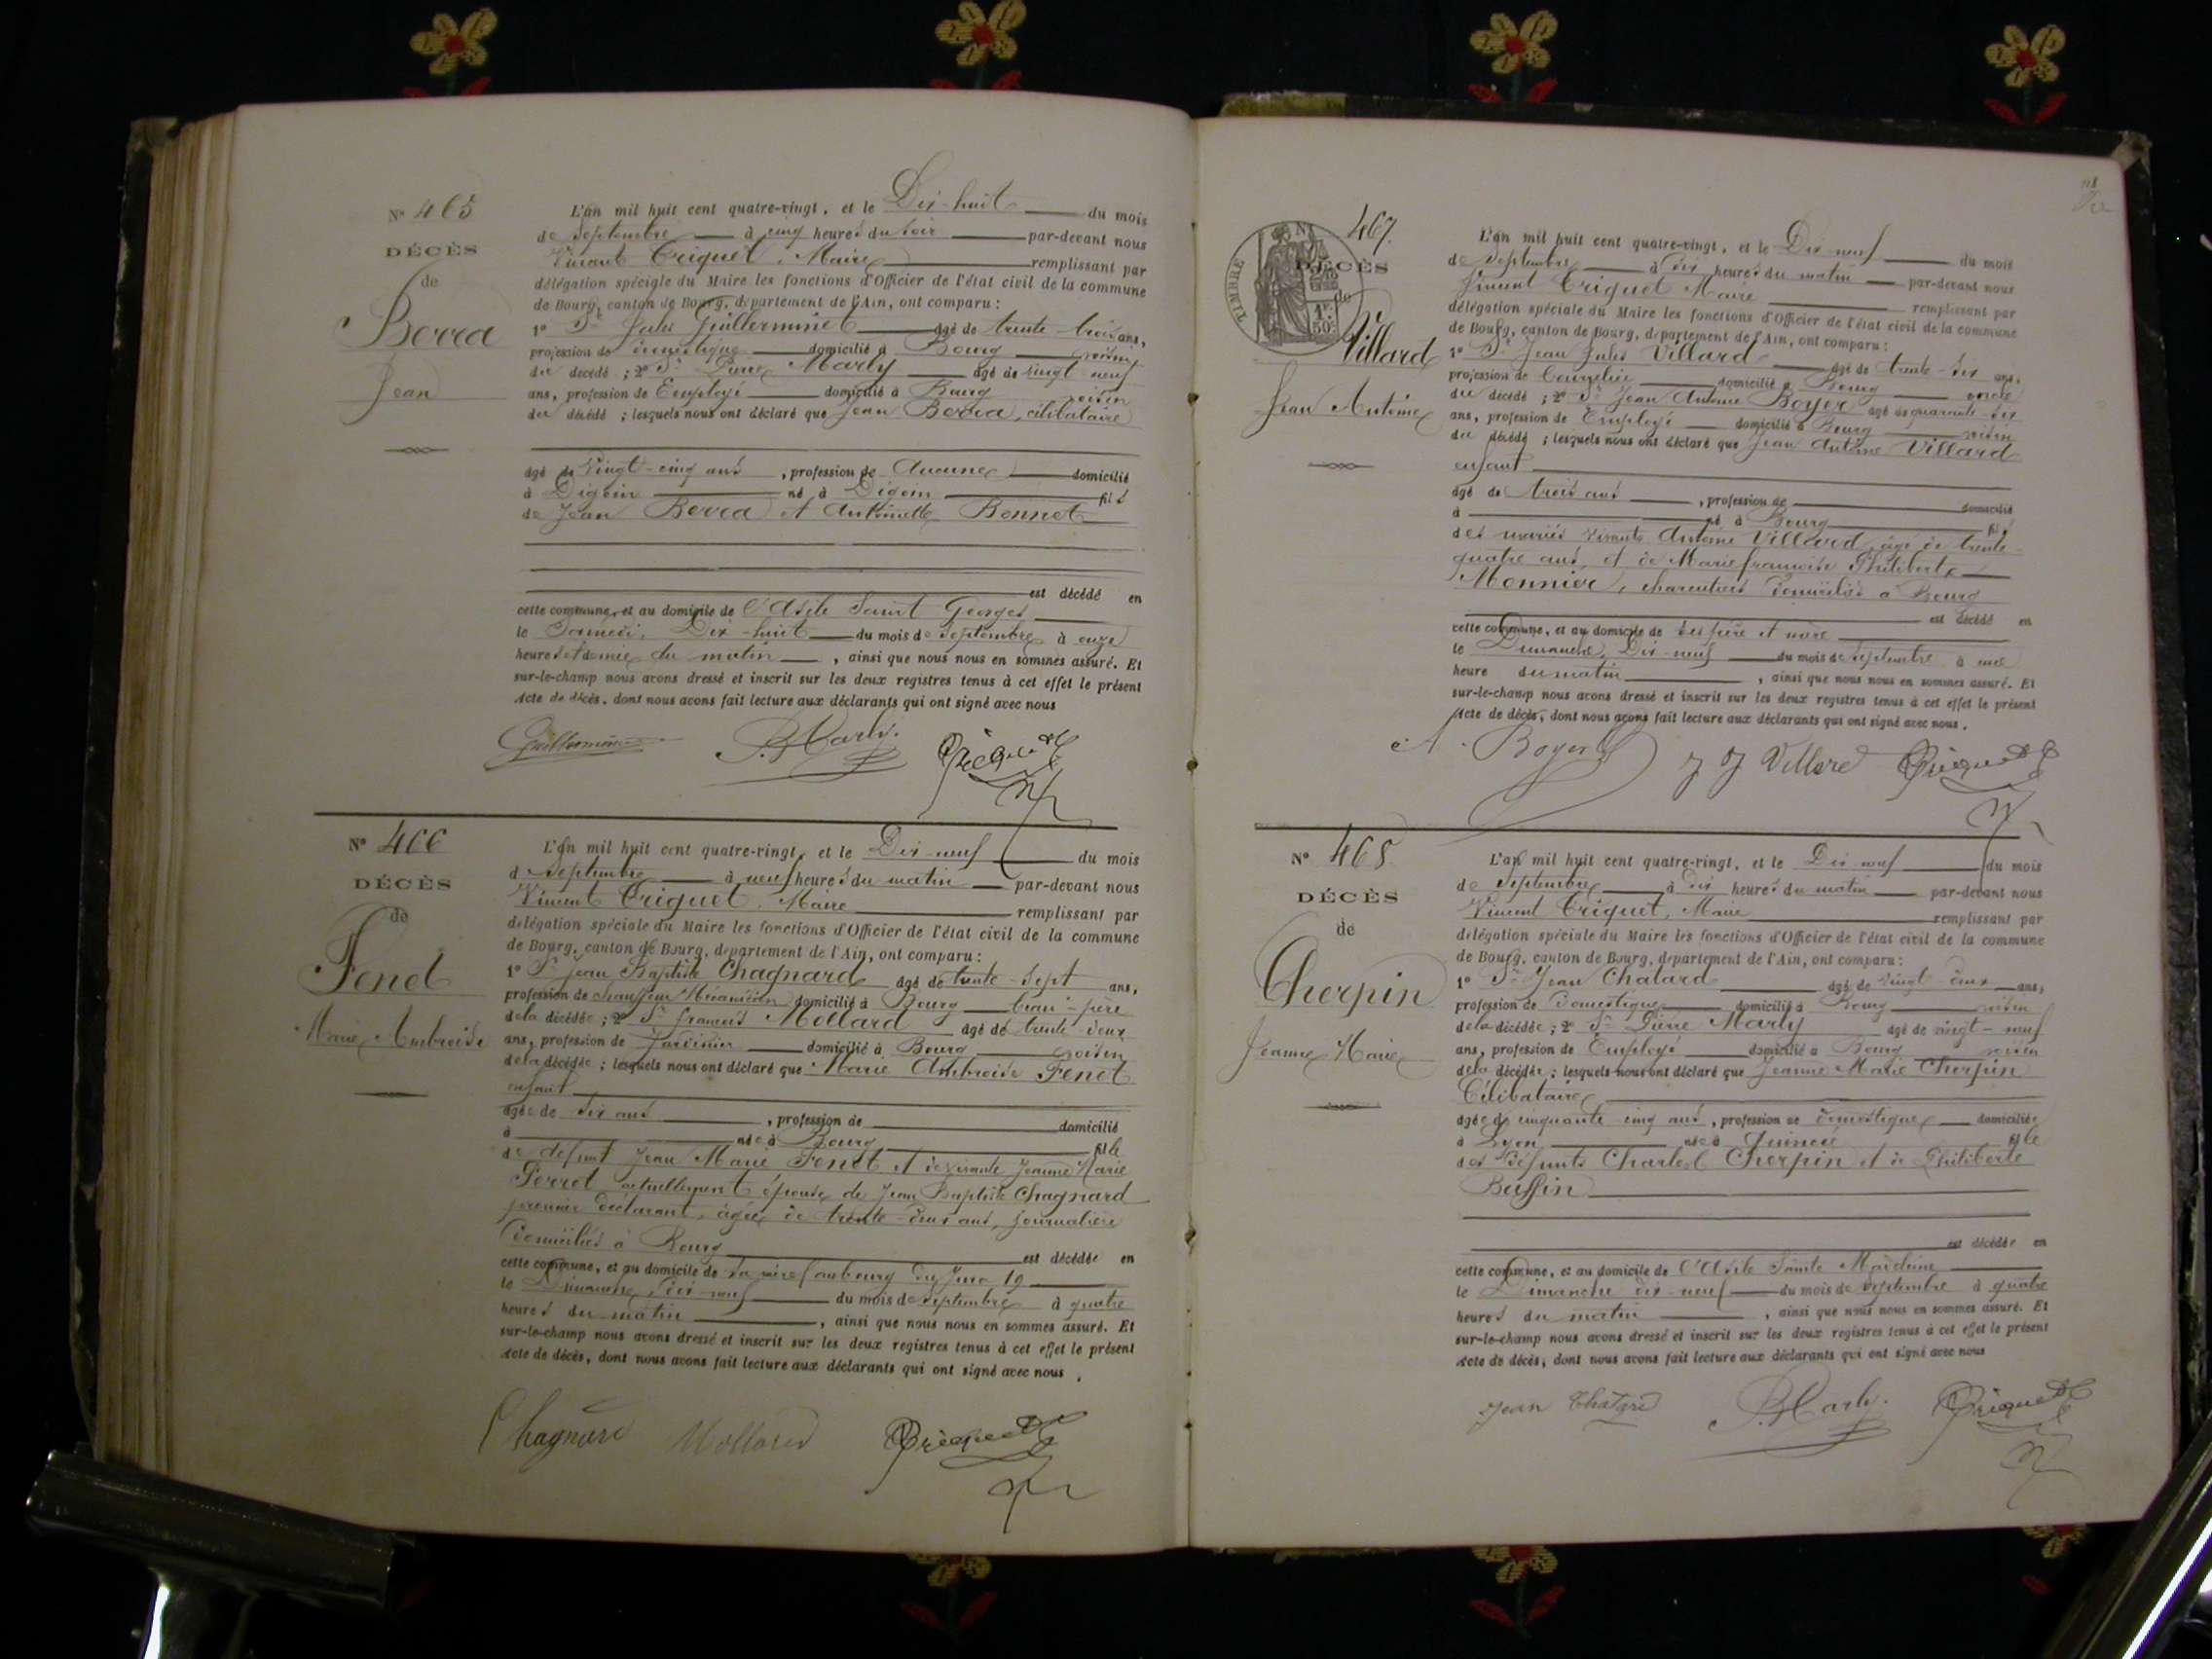 N° 465
DÉCÈS
de
Berra
Jean
L'an mil huit cent quatre-vingt, et le Dix-huit du mois
de Septembre à cinq heures du soir par-devant nous
Vincent Triquet, Maire remplissant par
délégation spéciale du Maire les fonctions d'Officier de l'état civil de la commune
de Bourg, canton de Bourg, département de l'Ain, ont comparu :
1° Sr Jules Guillerminet âgé de trente-trois ans,
profession de domestique domicilié à Bourg voisin
du décédé ; 2° Sr Pierre Marly âgé de vingt neuf
ans, profession de Employé domicilié à Bourg voisin
du décédé ; lesquels nous ont déclaré que Jean Berra, célibataire
âgé de Vingt-cinq ans, profession de Aucune domicilié
à Digoin né à Digoin fils
de Jean Berra et Antoinette Bonnet
est décédé en
cette commune, et au domicile de l'Asile Saint Georges
le Samedi, Dix-huit du mois de Septembre à onze
heures et demie du matin, ainsi que nous nous en sommes assuré. Et
sur-le-champ nous avons dressé et inscrit sur les deux registres tenus à cet effet le présent
acte de décès, dont nous avons fait lecture aux déclarants qui ont signé avec nous
Guillerminet P. Marly. Triquet
N° 466
DÉCÈS
de
Fenet
Marie Ambroise
L'an mil huit cent quatre-vingt, et le Dix-neuf du mois
de Septembre à neuf heures du matin par-devant nous
Vincent Triquet, Maire remplissant par
délégation spéciale du Maire les fonctions d'Officier de l'état civil de la commune
de Bourg, canton de Bourg, département de l'Ain, ont comparu :
1° Sr Jean Baptiste Chagnard âgé de trente-sept ans,
profession de chauffeur Mécanicien domicilié à Bourg beau-père
de la décédée ; 2° Sr françois Mollard âgé de trente deux
ans, profession de Jardinier domicilié à Bourg voisin
de la décédée ; lesquels nous ont déclaré que Marie Ambroise Fenet
enfant
âgée de dix ans, profession de domicilié
à née à Bourg fille
de défunt Jean Marie Fenet et de vivante Jeanne Marie
Perret actuellement épouse de Jean Baptiste Chagnard
premier déclarant, âgée de trente-deux ans, journalière
domiciliés à Bourg est décédée en
cette commune, et au domicile de sa mère faubourg du Jura 19
le Dimanche, dix-neuf du mois de Septembre à quatre
heures du matin, ainsi que nous nous en sommes assuré. Et
sur-le-champ nous avons dressé et inscrit sur les deux registres tenus à cet effet le présent
acte de décès, dont nous avons fait lecture aux déclarants qui ont signé avec nous.
Chagnard Mollard Triquet
N 467
TIMBRE
1F. 50c
DÉCÈS
de
Villard
Jean Antoine
L'an mil huit cent quatre-vingt, et le Dix neuf du mois
de Septembre à dix heures du matin par-devant nous
Vincent Triquet Maire remplissant par
délégation spéciale du Maire les fonctions d'Officier de l'état civil de la commune
de Bourg, canton de Bourg, département de l'Ain, ont comparu :
1° Sr Jean Jules Villard âgé de trente-six ans,
profession de domicilié à Bourg oncle
du décédé ; 2° Sr Jean Antoine Boyer âgé de quarante-six
ans, profession de Employé domicilié à Bourg voisin
du décédé ; lesquels nous ont déclaré que Jean Antoine Villard
enfant
âgé de trois ans, profession de domicilié
à né à Bourg fils
des mariés vivants Antoine Villard, âgé de trente-
quatre ans, et de Marie françoise Philiberte
Monnier, domiciliés à Bourg
est décédé en
cette commune, et au domicile de ses père et mère
le Dimanche, Dix-neuf du mois de Septembre à une
heure du matin, ainsi que nous nous en sommes assuré. Et
sur-le-champ nous avons dressé et inscrit sur les deux registres tenus à cet effet le présent
acte de décès, dont nous avons fait lecture aux déclarants qui ont signé avec nous.
A. Boyer J J Villard Triquet
N° 468
DÉCÈS
de
Cherpin
Jeanne Marie
L'an mil huit cent quatre-vingt, et le Dix neuf du mois
de Septembre à dix heures du matin par-devant nous
Vincent Triquet, Maire remplissant par
délégation spéciale du Maire les fonctions d'Officier de l'état civil de la commune
de Bourg, canton de Bourg, département de l'Ain, ont comparu :
1° Sr Jean Chatard âgé de vingt-deux ans,
profession de Domestique domicilié à Bourg voisin
de la décédée ; 2° Sr Pierre Marly âgé de vingt-neuf
ans, profession de Employé domicilié à Bourg voisin
de la décédée ; lesquels nous ont déclaré que Jeanne Marie Cherpin
Célibataire
âgée de cinquante cinq ans, profession de domestique domiciliée
à Lyon née à Quincié fille
des défunts Charles Cherpin et de Philiberte
Buffin
est décédée en
cette commune, et au domicile de l'Asile Sainte Madeleine
le Dimanche dix-neuf du mois de septembre à quatre
heures du matin, ainsi que nous nous en sommes assuré. Et
sur-le-champ nous avons dressé et inscrit sur les deux registres tenus à cet effet le présent
acte de décès, dont nous avons fait lecture aux déclarants qui ont signé avec nous
Jean Chatard P. Marly. Triquet